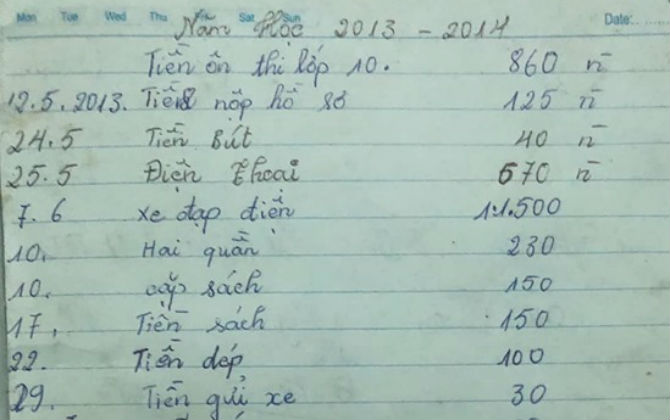 Mon Tue Wed Thu Fri Sat Sun Date:
Năm Học 2013 - 2014
Tiền ôn thi lớp 10. 860 n̄
12.5.2013. Tiền nộp hồ sơ 125 n̄
24.5 Tiền Bút 40 n̄
25.5 Điện thoại 670 n̄
7.6 Xe đạp điện 11.500
10. Hai quần 230
10. cặp sách 150
17. Tiền sách 150
22. Tiền dép 100
29. Tiền gửi xe 30